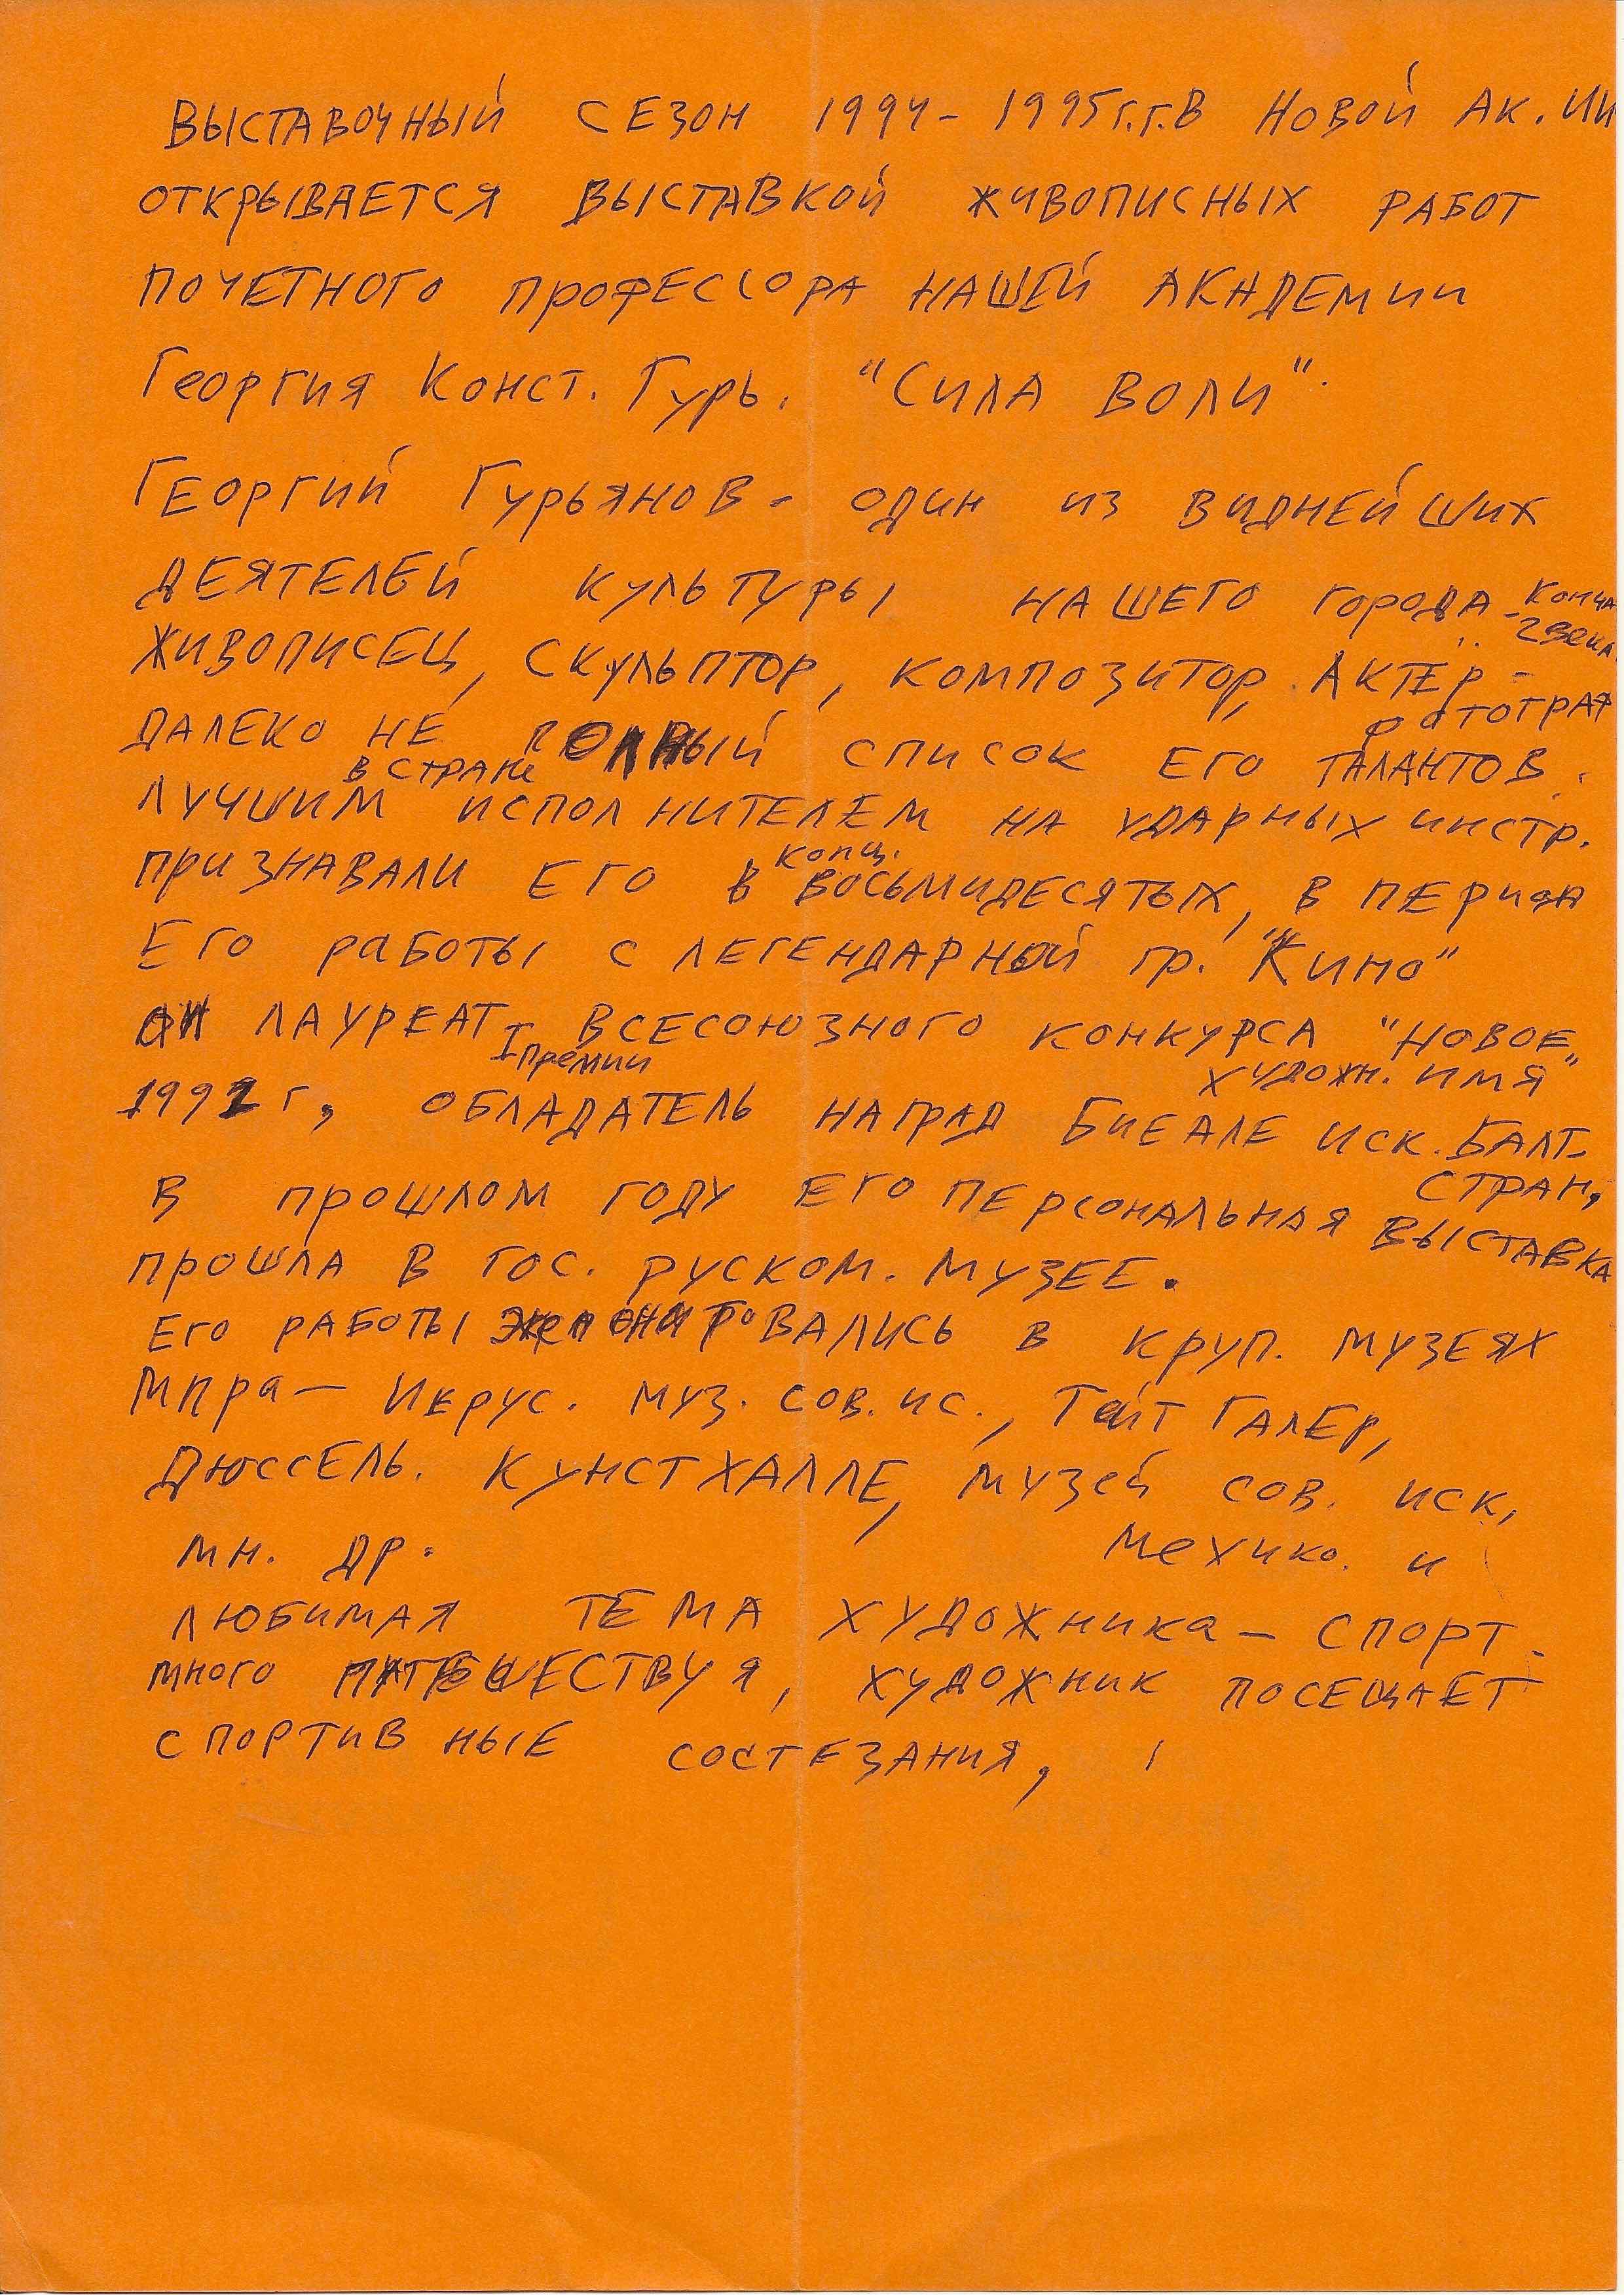 ВЫСТАВОЧНЫЙ СЕЗОН 1994-1995 г.г. В НОВОЙ АК. ИИ
ОТКРЫВАЕТСЯ ВЫСТАВКОЙ ЖИВОПИСНЫХ РАБОТ
ПОЧЕТНОГО ПРОФЕССОРА НАШЕЙ АКАДЕМИИ
Георгия Конст. Гурь. "СИЛА ВОЛИ".
ГЕОРГИЙ ГУРЬЯНОВ - ОДИН ИЗ ВИДНЕЙШИХ
ДЕЯТЕЛЕЙ КУЛЬТУРЫ НАШЕГО ГОРОДА - конца
века
ЖИВОПИСЕЦ, СКУЛЬПТОР, КОМПОЗИТОР, АКТЁР -
фотограф
ДАЛЕКО НЕ ПОЛНЫЙ СПИСОК ЕГО ТАЛАНТОВ.
в стране
ЛУЧШИМ ИСПОЛНИТЕЛЕМ НА УДАРНЫХ ИНСТР.
конц.
ПРИЗНАВАЛИ ЕГО В ВОСЬМИДЕСЯТЫХ, В ПЕРИОД
ЕГО РАБОТЫ С ЛЕГЕНДАРНОЙ гр. "Кино"
ОН ЛАУРЕАТ ВСЕСОЮЗНОГО КОНКУРСА "НОВОЕ
I премии
ХУДОЖН. ИМЯ"
199 г, ОБЛАДАТЕЛЬ НАГРАД БИЕАЛЕ ИСК. БАЛТ.
СТРАН,
В ПРОШЛОМ ГОДУ ЕГО ПЕРСОНАЛЬНАЯ ВЫСТАВКА
ПРОШЛА В ГОС. РУСКОМ. МУЗЕЕ.
ЕГО РАБОТЫ ЭКСПОНИРОВАЛИСЬ В КРУП. МУЗЕЯХ
Мира - ИЕРУС. МУЗ. СОВ. ИС., Тейт ГАЛЕР,
ДЮССЕЛЬ. КУНСТХАЛЛЕ, МУЗЕЙ СОВ. ИСК,
Мехико. и
МН. ДР.
ЛЮБИМАЯ ТЕМА ХУДОЖНИКА - СПОРТ.
МНОГО ПУТЕШЕСТВУЯ, ХУДОЖНИК ПОСЕЩАЕТ
СПОРТИВНЫЕ СОСТЕЗАНИЯ,